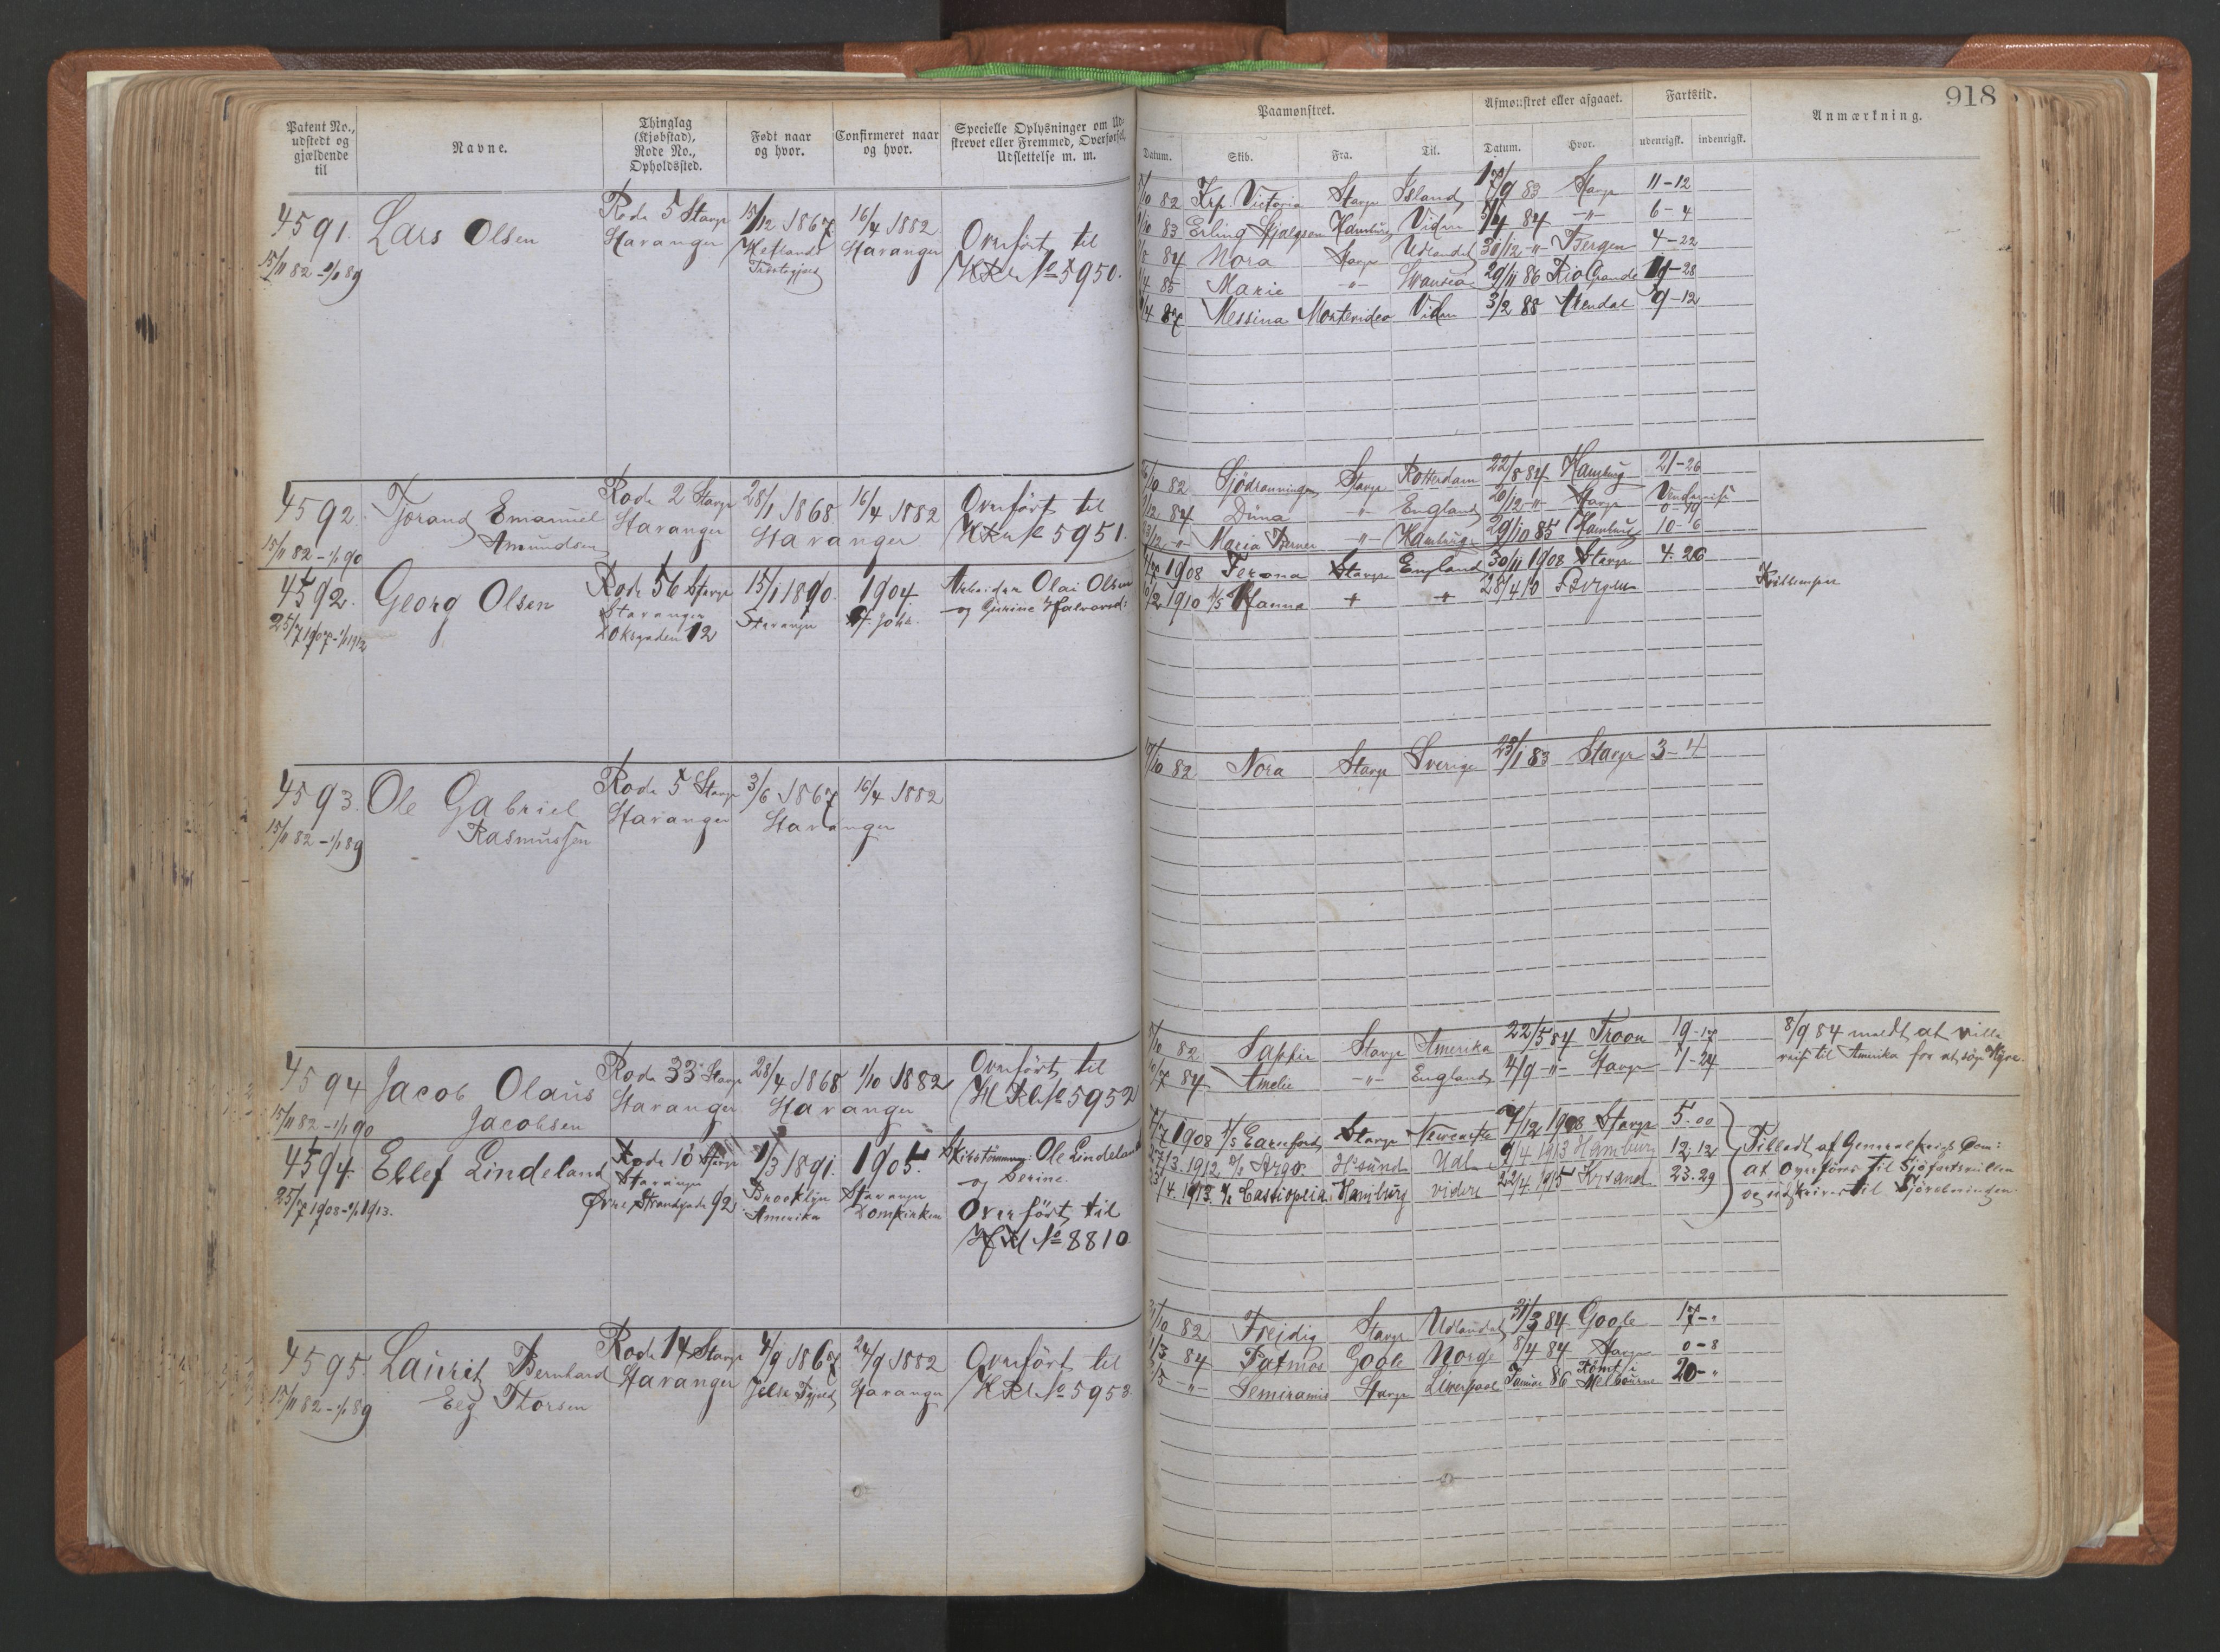 918
Patent No., udstedt og gjældende til
Navne.
Thinglag (Kjøbstad), Rode No., Opholdssted.
Født naar og hvor.
Confirmeret naar og hvor.
Specielle Oplysninger om Ud-
skrevet eller Fremmed, Overførsel,
Udslettelse m. m.
Paamønstret.
Afmønstret eller afgaaet.
Fartstid.
Anmærkning.
Datum. Skib. Fra. Til. Datum. Hvor. udenrigsk. indenrigsk.
4591. Lars Olsen Rode 5 Stavgr 15/12 1867 16/4 1882
Stavanger Hetlands Stavanger Overført til
15/11 82 - 1/1 89 No 5950.
/10 82 Krp. Victoria Stavgr Island 17/9 83 Stavgr 11-12
/10 83 Erling Skjalgson Hamburg Viden 84 -"- 6-4
84 Nora Stavgr Udlandet 30/12 -"- Bergen 4-22
/4 85 Marie -"- Swansea 29/11 86 Rio Grande 19-28
/4 87 Messina Montevideo Viden 3/2 88 Arendal 9-12
4592. Tjørand Emanuel Rode 2 Stavgr 28/1 1868 16/4 1882 Overført til
Amundsen Stavanger Stavanger 5951.
15/11 82 - 1/1 90
/10 82 Sjödronningen Stavgr Rotterdam 22/8 84 Hamburg 21-26
/12 84 Düna " England 20/12 -"- Stavgr 0-19
23/12 -"- Maria Berner -"- Hamburg 29/10 85 Hamburg 10-6
4592. Georg Olsen Rode 56 Stavgr 15/1 1890. 1904. Arbeider Olai Olsen
Stavanger Stavanger St. Joh. og Gurine Halvorsd:
25/7 1907 - 1/1 1912 12
1908 Verona Stavgr England 30/11 1908 Stavgr 4.26
/2 1910 Hanna + + 28/4 10 Bergen
4593. Ole Gabriel Rode 5 Stavgr 3/6 1867 16/4 1882
Rasmussen Stavanger Stavanger
15/11 82 - 1/1 89
/10 82 Nora Stavgr Sverige 23/1 83 Stavgr 3-4
4594 Jacob Olaus Rode 33 Stavgr 28/4 1868 1/10 1882 Overført til
Jacobsen Stavanger Stavanger 5952
15/11 82 - 1/1 90
/10 82 Saphir Stavgr Amerika 22/5 84 Troon 19-17 8/9 84 meldt at ville
/7 84 Amelie -"- England 4/9 -"- Stavgr 1-24 reise til Amerika for at søge Hyre.
4594. Ellef Lindeland Rode 10 Stavgr 1/3 1891. 1905. Skibstømmerm: Ole Lindeland
Stavanger Brooklyn Stavanger og Serine.
25/7 1908 - 1/1 1913. Øvre Strandgade 92 Amerika Domkirken Overført til
No 8810
/7 1908 Stavgr Newcastle 7/12 1908 Stavgr 5.00
/3. 1912 Argo H'sund Udl 9/4 1913 Hamburg 12.12 Tilladt af Generalkrigs Com:
/4. 1913 Cassiopeia Hamburg videre 22/4. 1915 Krsand 23.29 at overføres til Sjöfartsrullen
og udskrives til Sjöværningen
4595. Lauritz Bernhard Rode 14 Stavgr 4/9 1867 24/9 1882 Overført til
Eeg Thorsen Stavanger Jelse Stavanger 5953
15/11 82 - 1/1 89
/10 82 Freidig Stavgr Udlandet 31/3 84 Goole 17-"
/3 84 Patmos Goole Norge 8/4 84 Stavgr 0-8
/5 -"- Semiramis Stavgr Liverpool Januar 86 Rømt i Melbourne 20-"